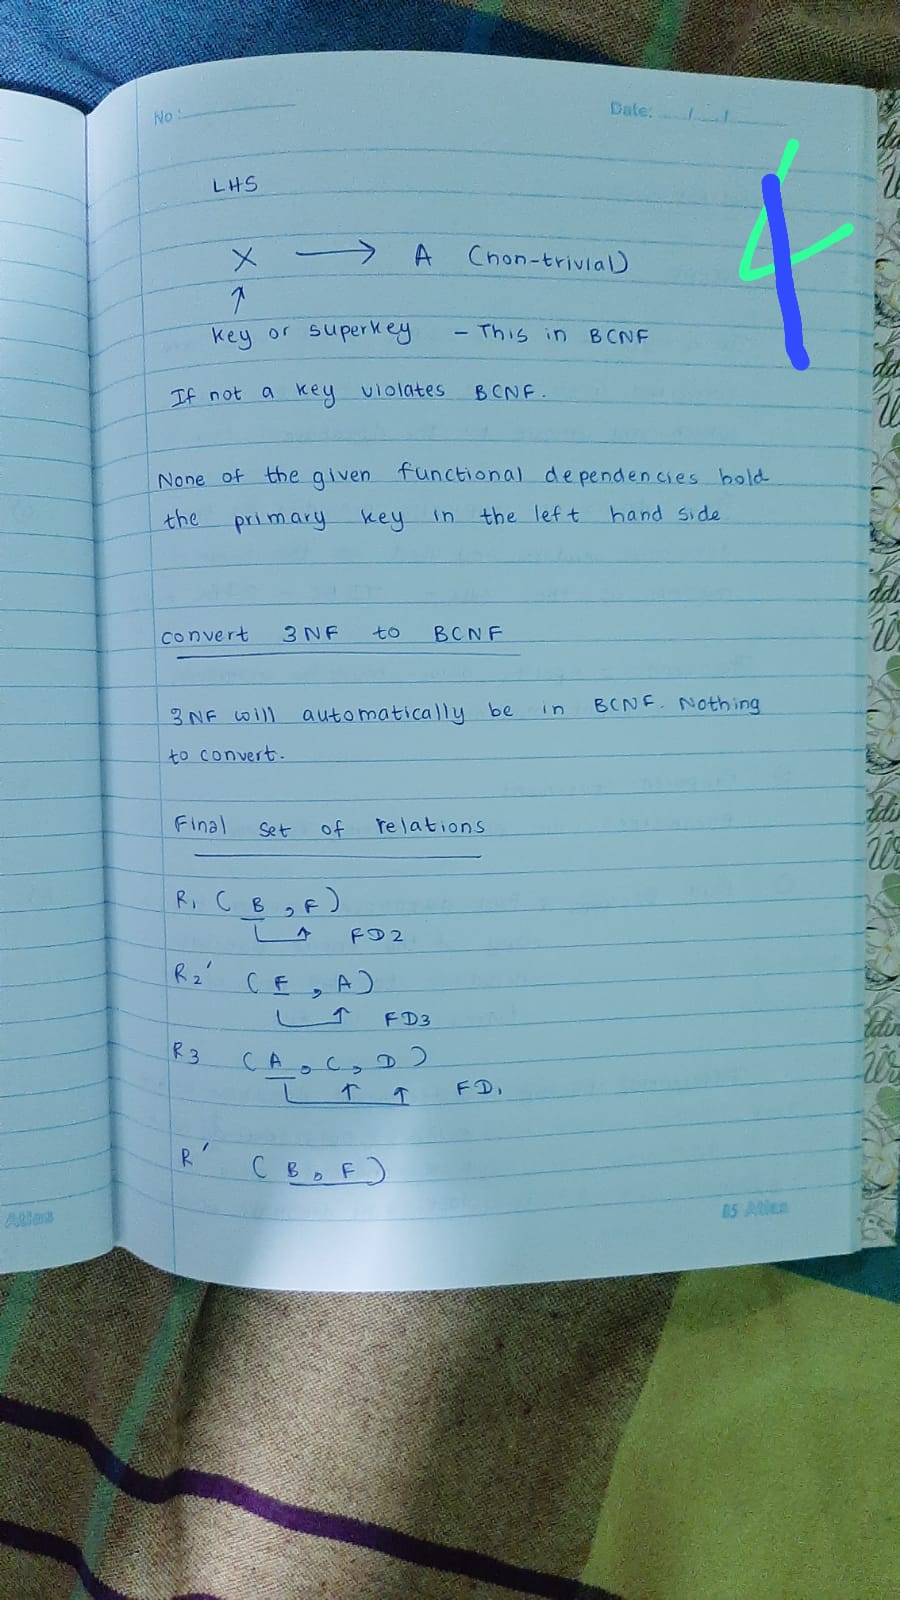 No:
Date: / /
4
LHS
X → A (non-trivial)
↑
key or superkey - This in BCNF
If not a key violates BCNF.
None of the given functional dependencies hold
the primary key in the left hand side
convert 3NF to BCNF
3NF will automatically be in BCNF. Nothing
to convert.
Final set of relations
R1 ( B , F )
FD2
R2' ( F , A )
FD3
R3 ( A , C , D )
FD1
R' ( B , F )
Atlas
Atlas